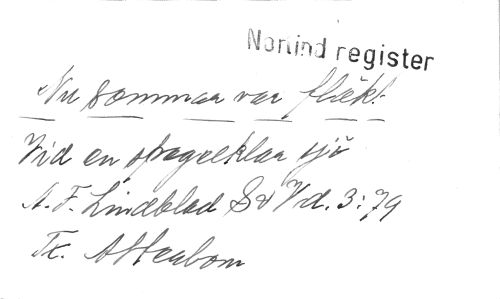 Nortind register
Nu sommar var fläkt
Vid en spegelklar sjö
A. F. Lindblad Sv Vd. 3:79
Tx. Atterbom